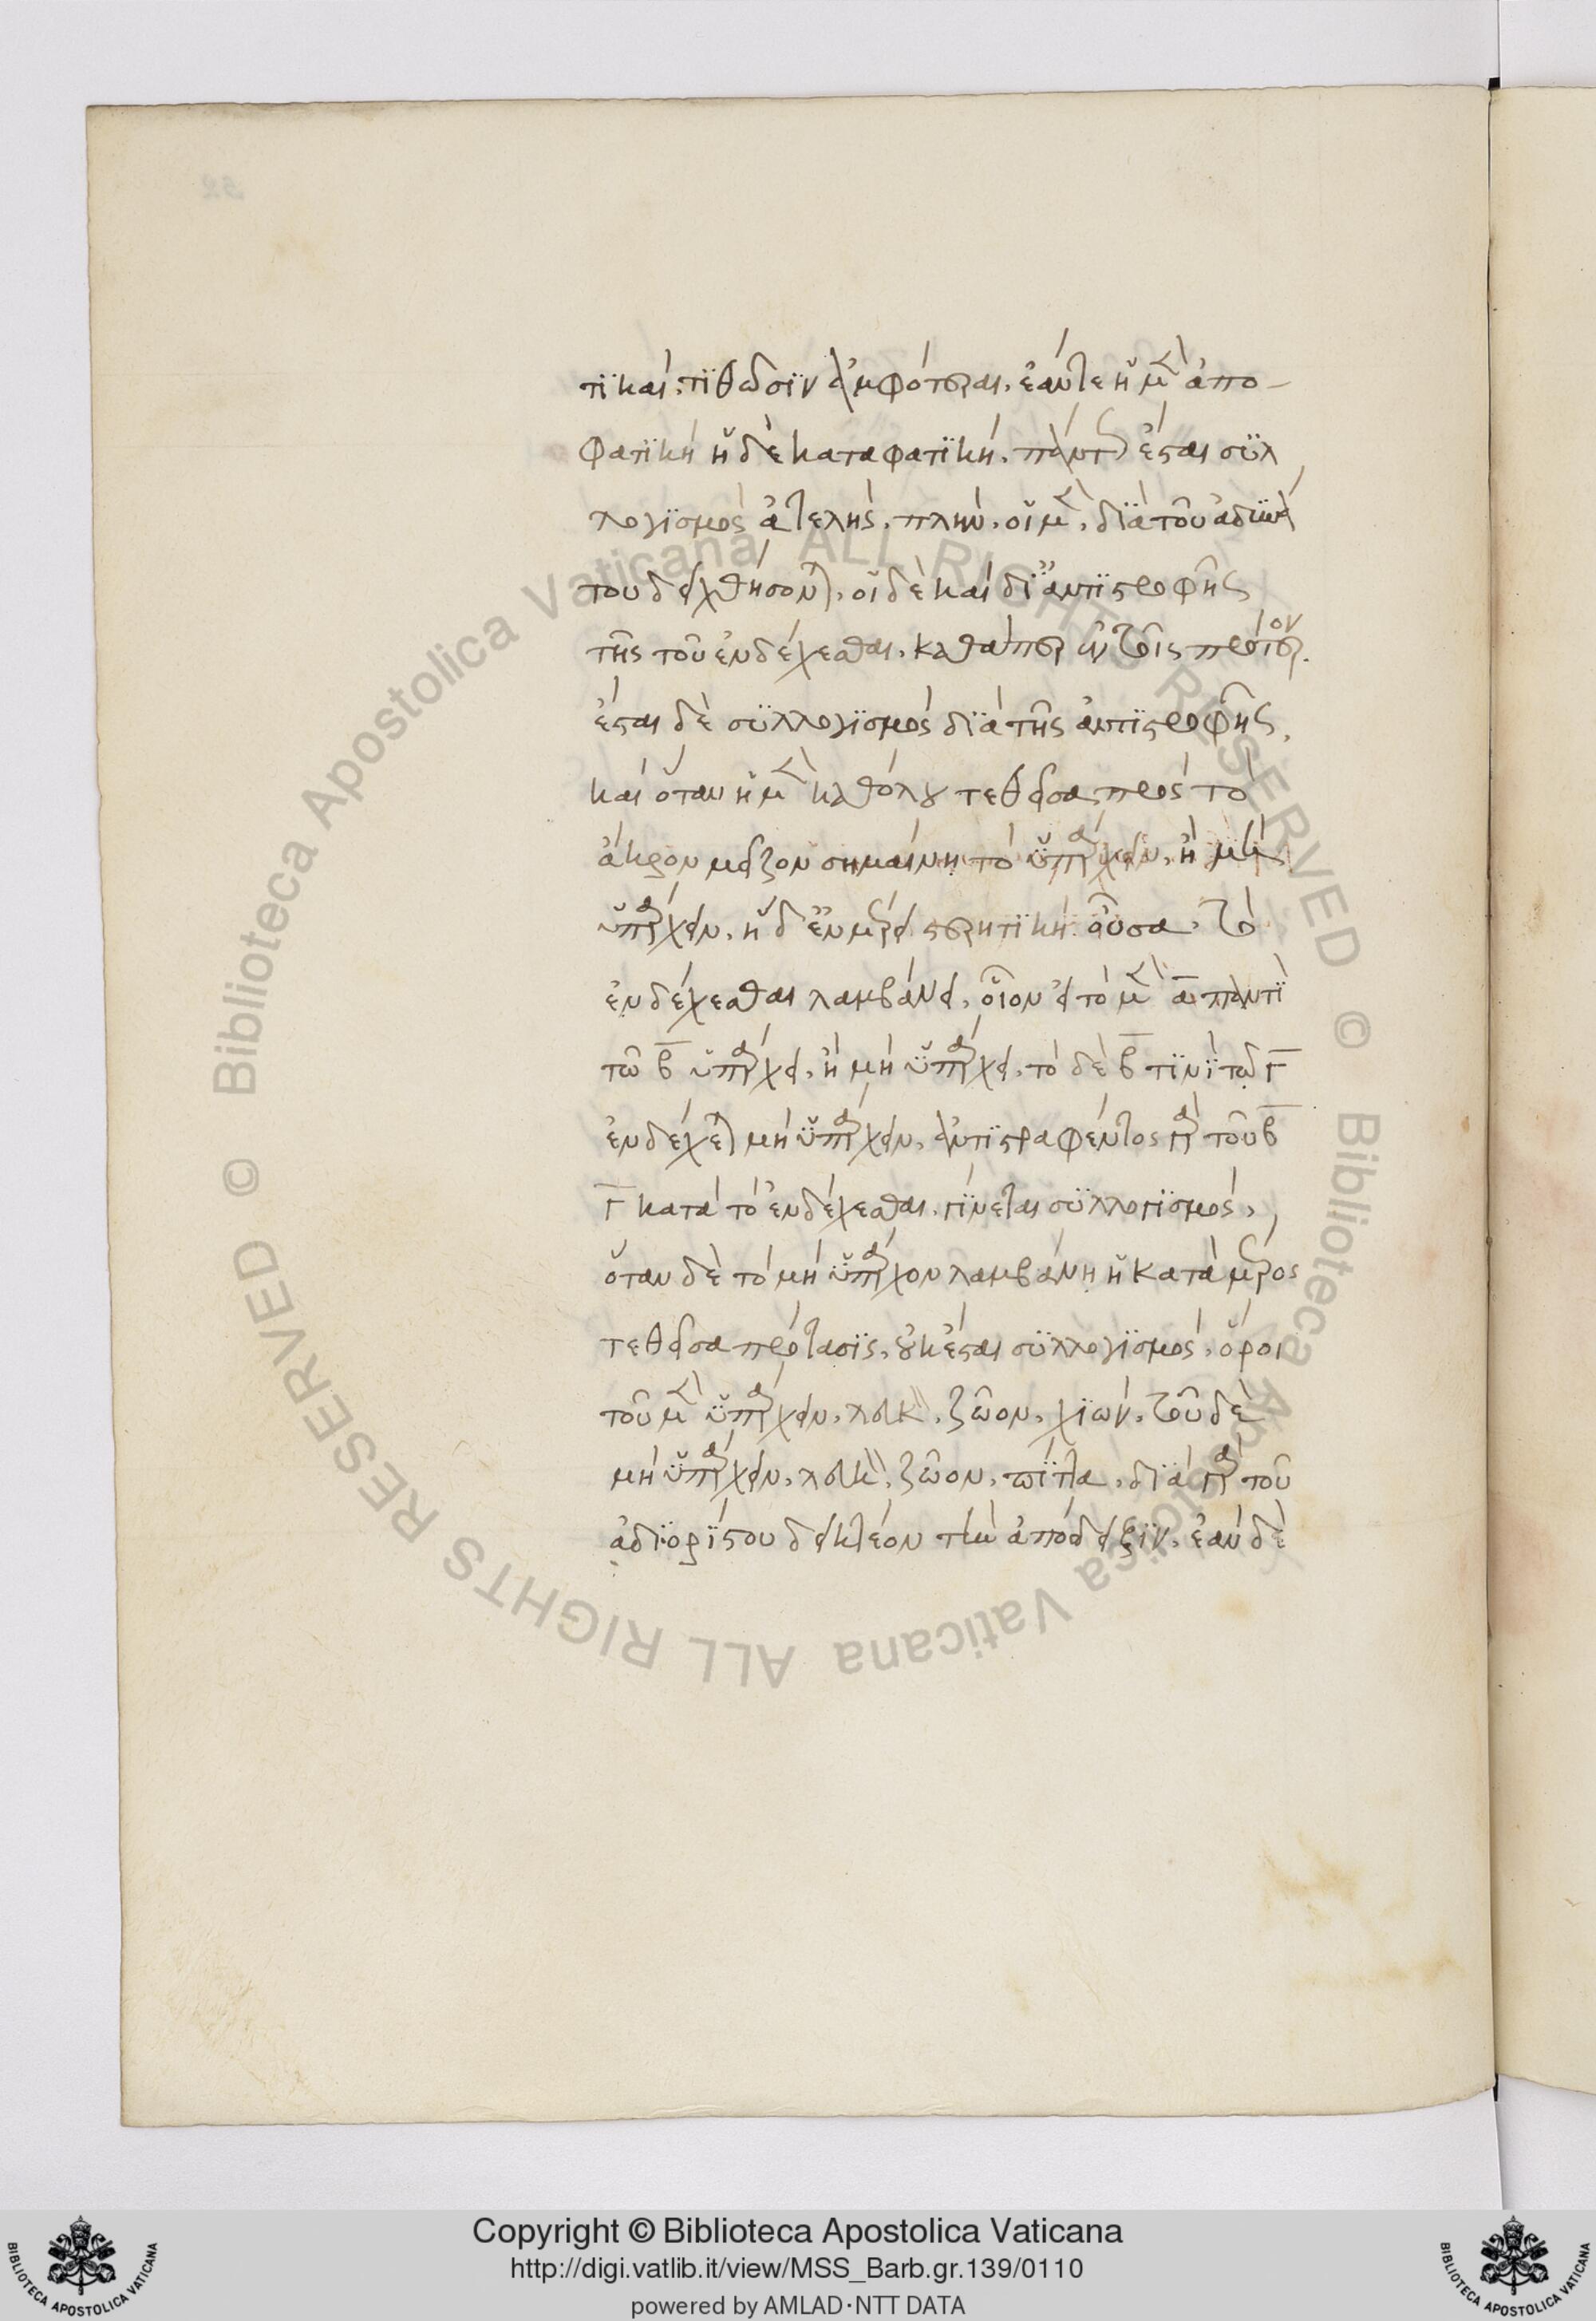 τικαὶ τιθῶσιν ἀμφότεραι, ἐάντε ἡ μὲν ἀπο-
φατικὴ ἡ δὲ καταφατικὴ, πάντως ἔσται συλ
λογισμὸς ἀτελὴς, πλὴν, οἱ μὲν, διὰ τοῦ ἀδυνά
του δειχθήσονται, οἱ δὲ καὶ δι' ἀντιστροφῆς
τῆς τοῦ ἐνδέχεσθαι, καθάπερ ἐν τοῖς πρότερον.
ἔσται δὲ συλλογισμὸς διὰ τῆς ἀντιστροφῆς,
καὶ ὅταν ἡ μὲν καθόλου τεθεῖσα πρὸς τὸ
ἄκρον μεῖζον σημαίνη τὸ ὑπάρχειν, ἢ μὴ
ὑπάρχειν, ἡ δ' ἐν μέρει στερητικὴ οὖσα, τὸ
ἐνδέχεσθαι λαμβάνει, οἷον εἰ τὸ μὲν α παντὶ
τῶ β ὑπάρχει, ἢ μὴ ὑπάρχει, τὸ δὲ β τινὶ τῶ γ
ἐνδέχεται μὴ ὑπάρχειν, ἀντιστραφέντος γὰρ τοῦ β
γ κατὰ τὸ ἐνδέχεσθαι, γίνεται συλλογισμὸς,
ὅταν δὲ τὸ μὴ ὑπάρχον λαμβάνη ἡ κατὰ μέρος
τεθεῖσα πρότασις, οὐκ ἔσται συλλογισμὸς, ὅροι
τοῦ μὲν ὑπάρχειν, λευκὸν, ζῶον, χιών, τοῦ δὲ
μὴ ὑπάρχειν, λευκὸν, ζῶον, πίττα, διὰ γὰρ τοῦ
ἀδιορίστου δεικτέον τὴν ἀπόδειξιν, ἐὰν δὲ
Copyright © Biblioteca Apostolica Vaticana
http://digi.vatlib.it/view/MSS_Barb.gr.139/0110
powered by AMLAD·NTT DATA
BIBLIOTECA APOSTOLICA VATICANA
BIBLIOTECA APOSTOLICA VATICANA
© Biblioteca Apostolica Vaticana ALL RIGHTS RESERVED
© Biblioteca Apostolica Vaticana ALL RIGHTS RESERVED